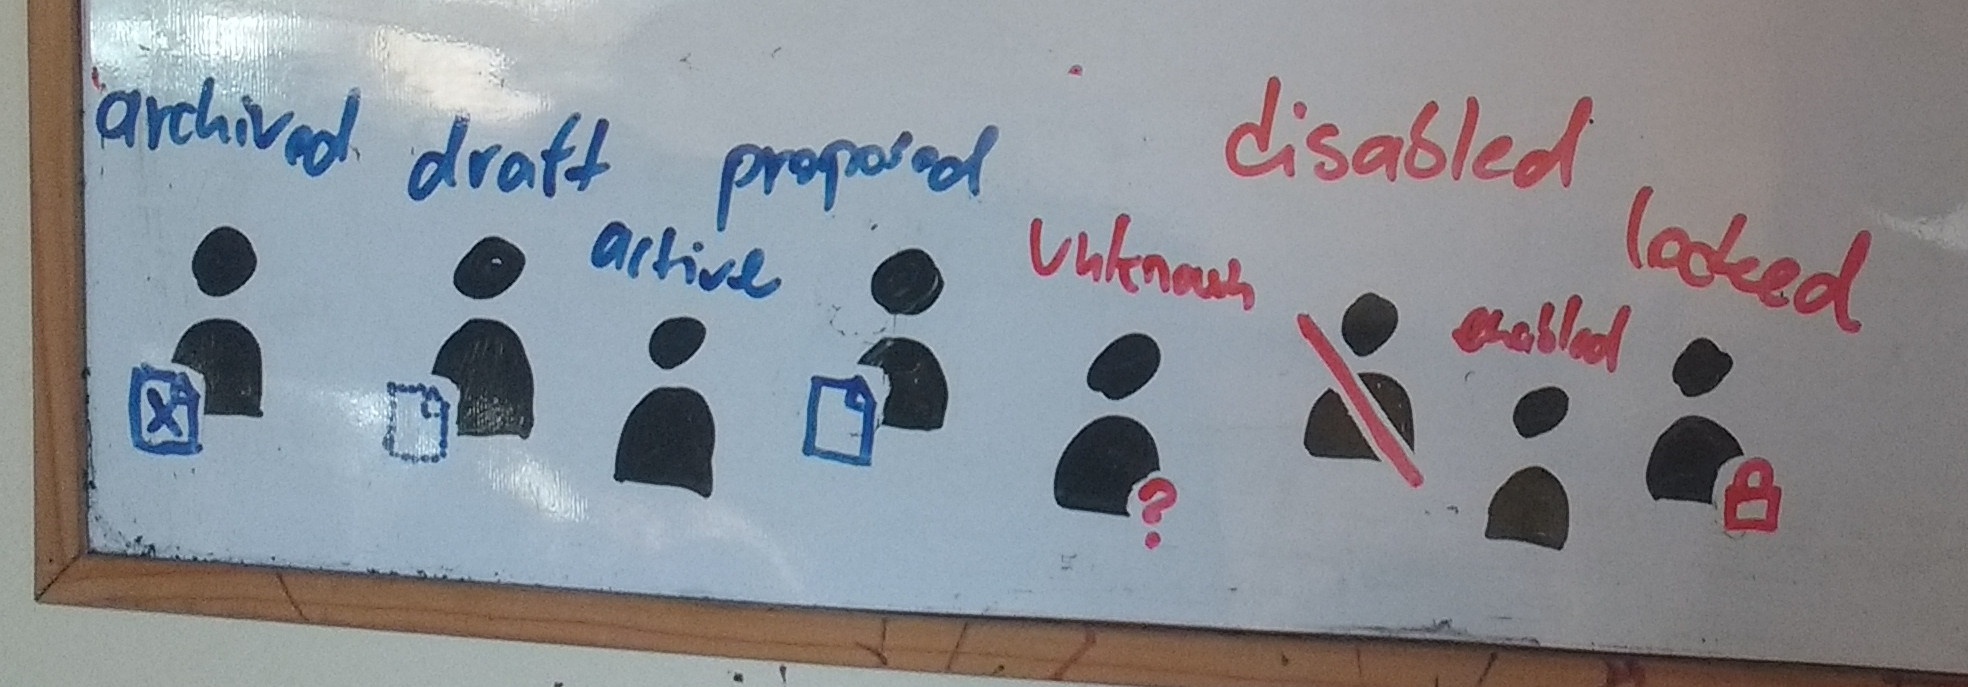 archived
draft
active
proposed
unknown
disabled
enabled
locked
?